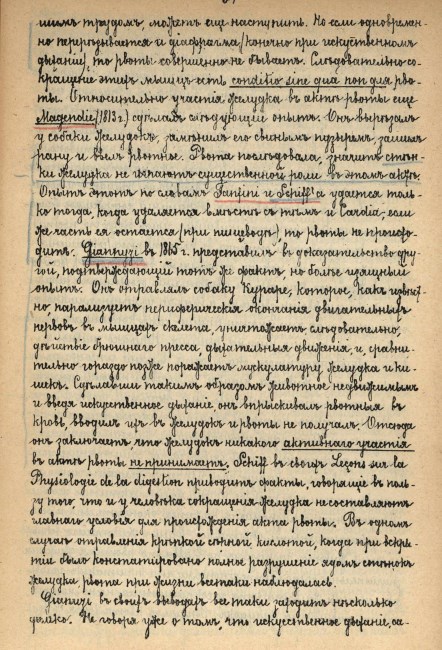 шимъ трудомъ, можетъ еще наступить. Но если одновремен-
но перерѣзывается и діафрагма (конечно при искуственномъ
дыханіи), то рвоты совершенно не бываетъ. Слѣдовательно со-
кращеніе этихъ мышцъ есть conditio sine qua non для рво-
ты. Относительно участія желудка въ актѣ рвоты еще
Magendie (1813 г.) сдѣлалъ слѣдующій опытъ. Онъ вырѣзалъ
у собаки желудокъ, замѣнилъ его свинымъ пузыремъ, зашилъ
рану и ввелъ рвотное. Рвота послѣдовала, значитъ стѣн-
ки желудка не играютъ существенной роли въ этомъ актѣ.
Опытъ этотъ по словамъ Tantini и Schiff'а удается толь-
ко тогда, когда удаляется вмѣстѣ съ тѣмъ и Cardia; если
же часть ея остается (при пищеводѣ) то рвоты не происхо-
дитъ. Gianuzzi въ 1865 г. представилъ въ доказательство дру-
гой, подтверждающій тотъ же фактъ, но болѣе изящный
опытъ. Онъ отравлялъ собаку Кураре, которое, какъ извѣст-
но, парализуетъ периферическія окончанія двигательныхъ
нервовъ въ мышцахъ скелета, уничтожаетъ, слѣдовательно,
дѣйствіе брюшнаго пресса, дыхательныя движенія, и, сравни-
тельно гораздо позже поражаетъ мускулатуру желудка и ки-
шекъ. Сдѣлавши такимъ образомъ животное недвижимымъ
и введя искуственное дыханіе онъ впрыскивалъ рвотныя въ
кровь, вводилъ ихъ въ желудокъ и рвоты не получалъ. Отсюда
онъ заключаетъ что желудокъ никакого активнаго участія
въ актѣ рвоты не принимаетъ. Schiff въ своихъ Leçons sur la
Physiologie de la digestion приводитъ факты, говорящіе въ поль-
зу того, что и у человѣка сокращенія желудка не составляютъ
главнаго условія для происхожденія акта рвоты. Въ одномъ
случаѣ отравленія крѣпкой сѣрной кислотой, когда при вскры-
тіи было констатировано полное разрушеніе ядомъ стѣнокъ
желудка рвота при жизни всетаки наблюдалась.
Gianuzi въ своихъ выводахъ все таки заходитъ нѣсколько
далеко. Не говоря уже о томъ, что искусственное дыханіе, са-